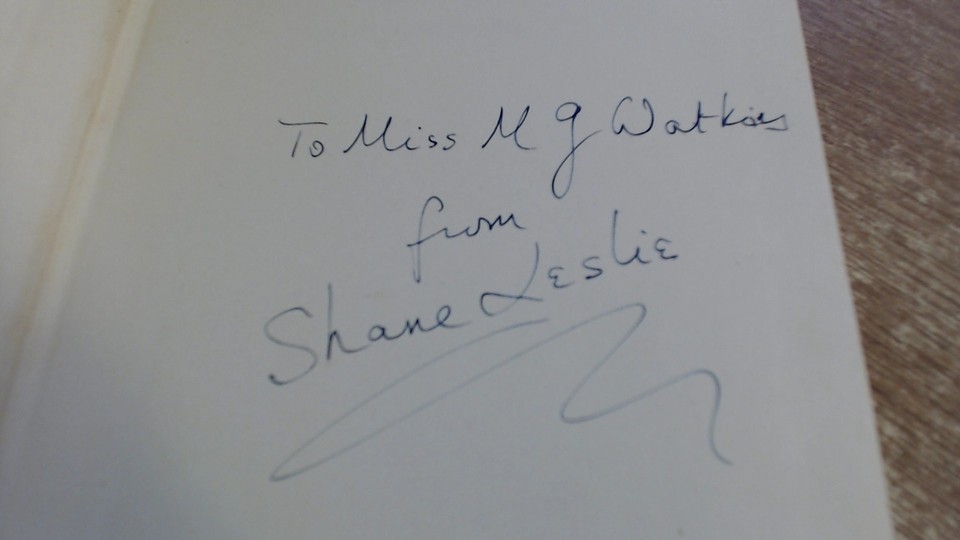 To Miss M G Watkins
from
Shane Leslie